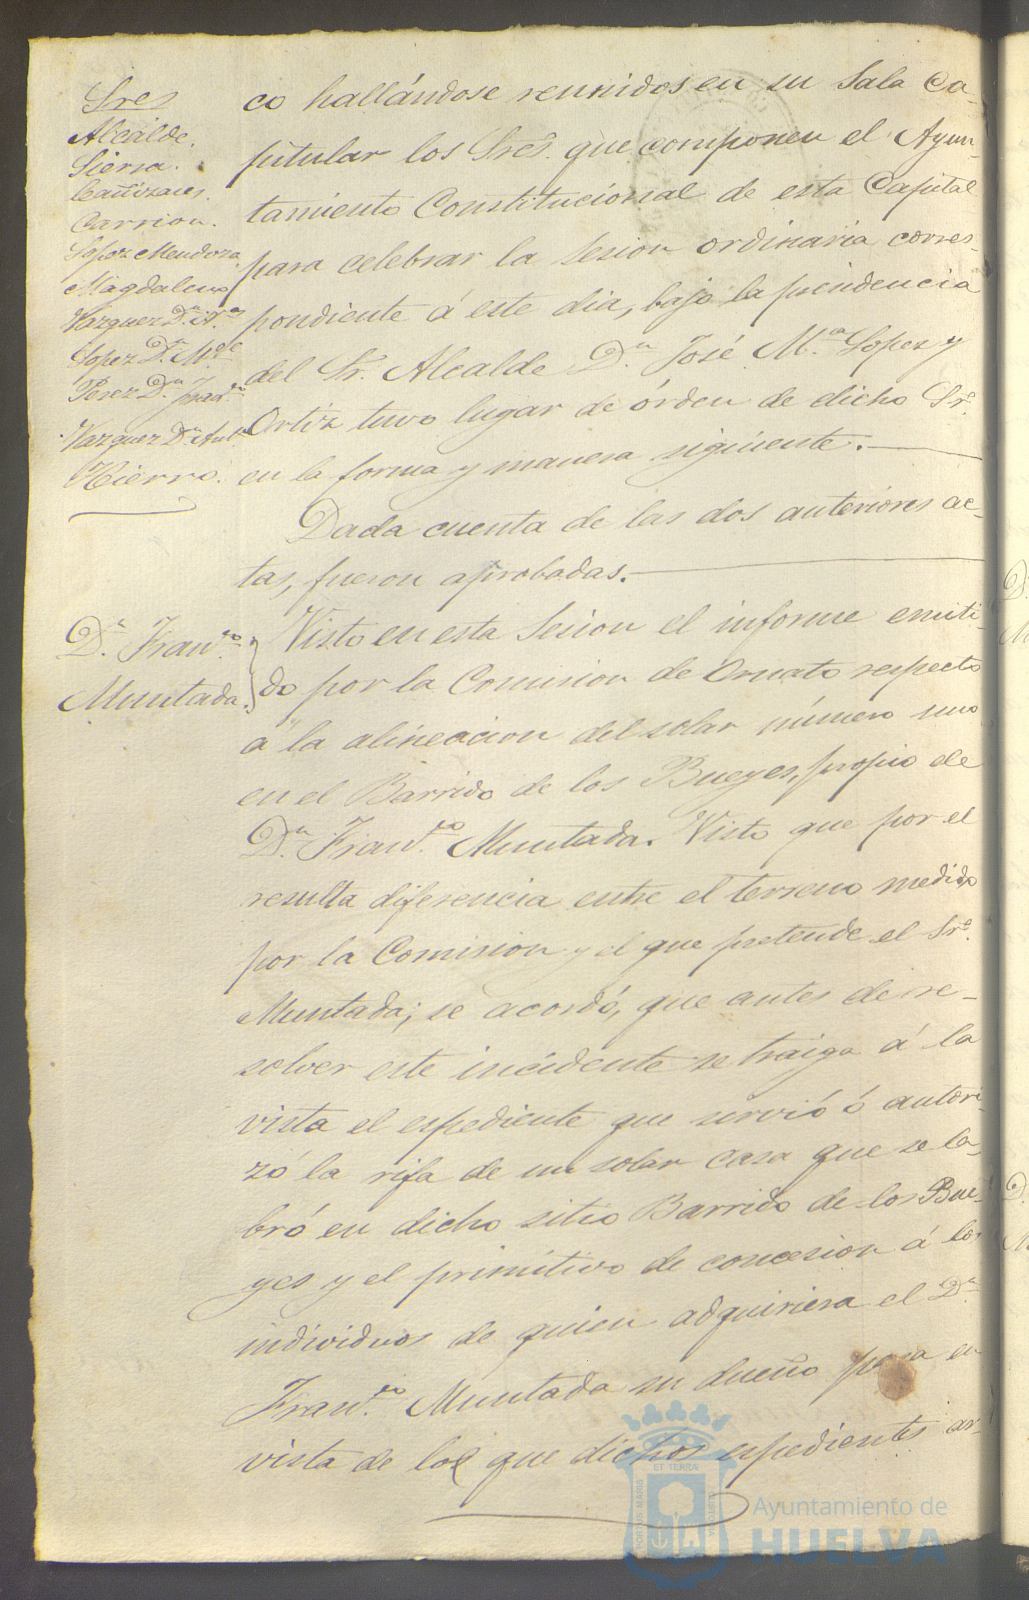 Sres
Alcalde.
Sierra.
Cañizares.
Carrion.
Lopez Mendoza
Magdaleno
Vazquez D.n A.o
Lopez D.n M.l
Perez D.n Fran.co
Vazquez D.n Ant.o
Hierro.
co hallándose reunidos en su Sala Ca-
pitular los Sres. que componen el Ayun-
tamiento Constitucional de esta Capital
para celebrar la sesion ordinaria corres-
pondiente á este dia, bajo la presidencia
del Sr. Alcalde D.n José M.a Lopez y
Ortiz tuvo lugar de órden de dicho Sr.
en la forma y manera siguiente.
Dada cuenta de las dos anteriores ac-
tas, fueron aprobadas.
D.n Fran.co
Muntada.
Visto en esta Sesion el informe emiti-
do por la Comision de Ornato respecto
a la alineacion del solar número uno
en el Barrido de los Bueyes, propio de
D.n Fran.co Muntada. Visto que por el
resulta diferencia entre el terreno medido
por la Comision y el que pretende el Sr.
Muntada; se acordó, que antes de re-
solver este incidente se traiga á la
vista el espediente que sirvió ó autori-
zó la rifa de un solar casa que se la-
bró en dicho sitio Barrido de los Bue-
yes y el primitivo de concesion á los
individuos de quien adquiriera el D.n
Fran.co Muntada su dueño para en
vista de lo que dichos espedientes ar-
PORTUS MARIS
ET TERRÆ
CUSTODIA
Ayuntamiento de
HUELVA